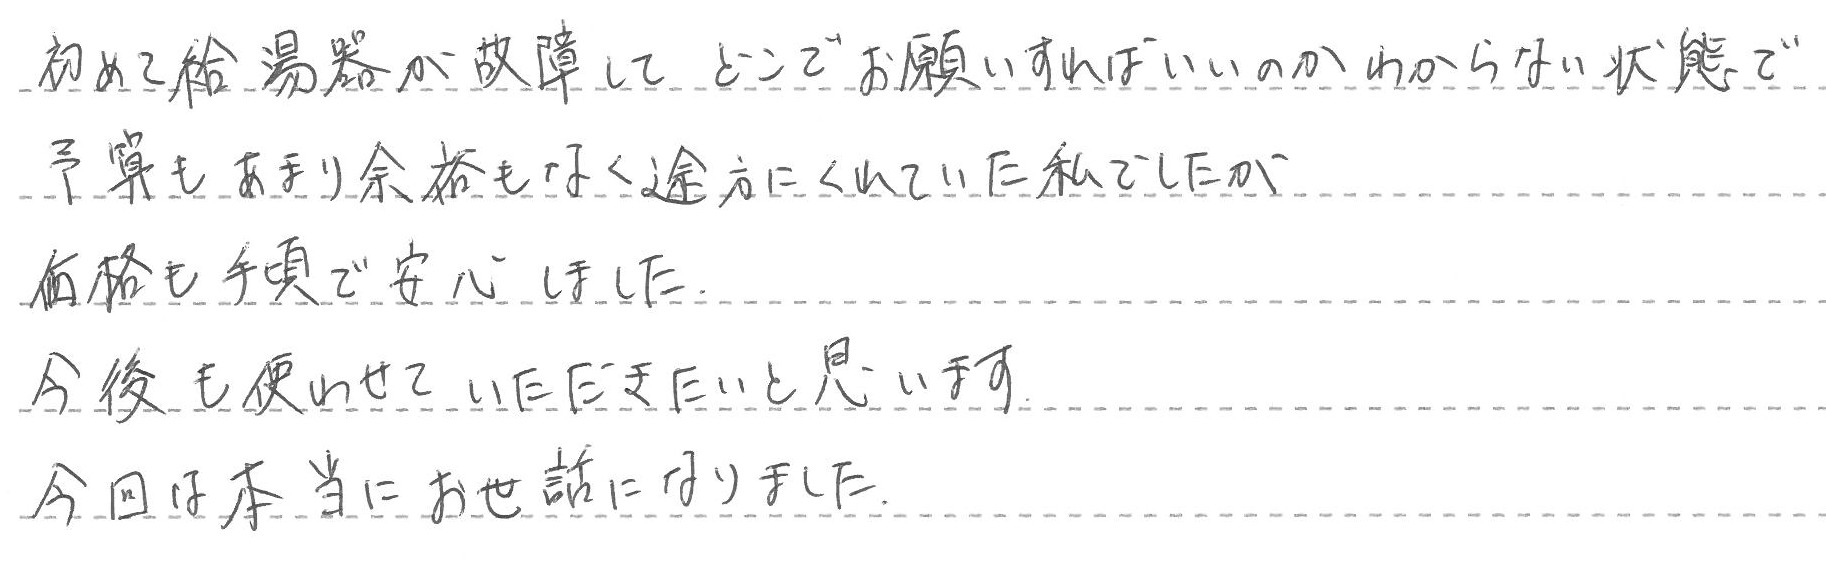 初めて給湯器が故障して どこでお願いすればいいのかわからない状態で
予算もあまり余裕もなく途方にくれていた私でしたが
価格も手頃で安心しました.
今後も使わせていただきたいと思います.
今回は本当にお世話になりました.